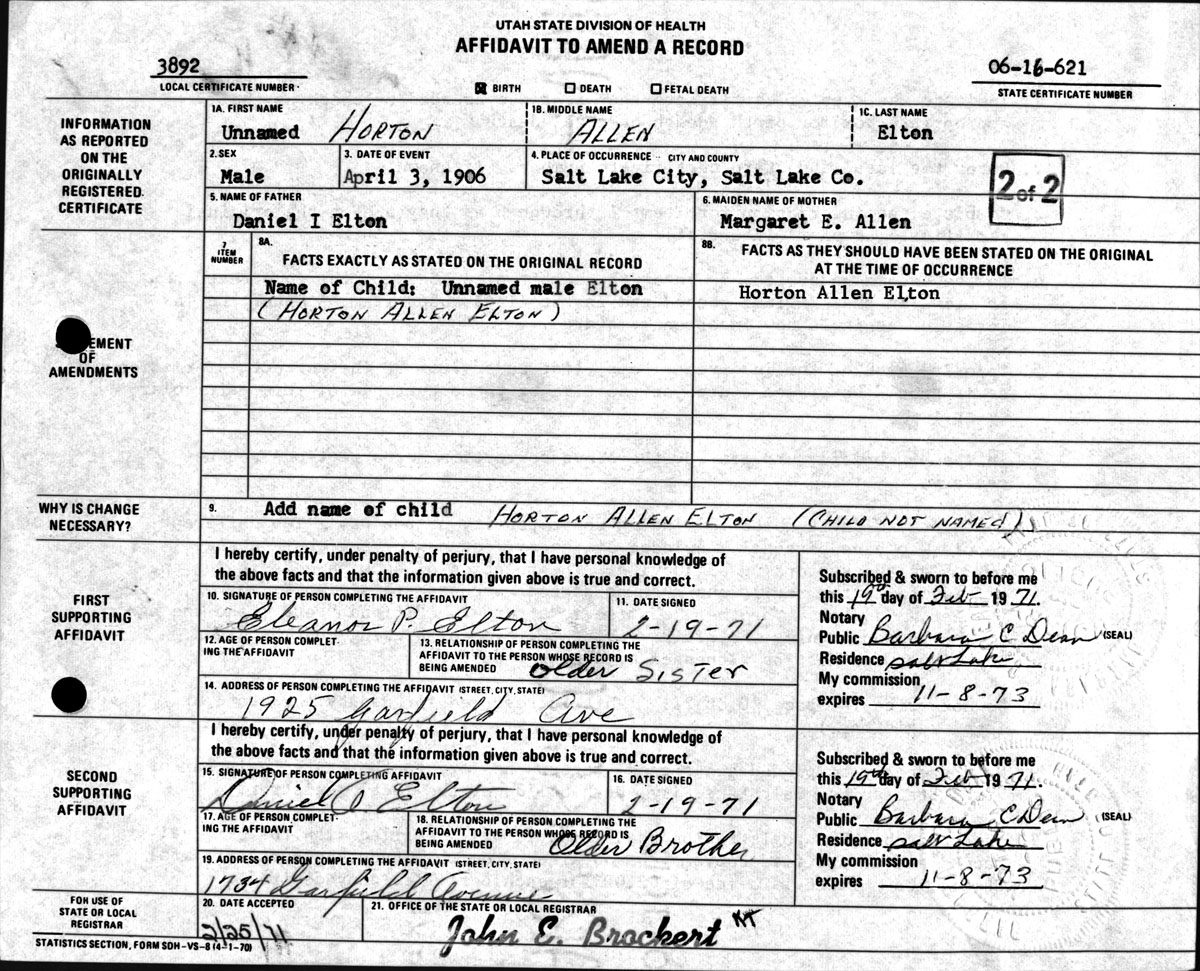 UTAH STATE DIVISION OF HEALTH
AFFIDAVIT TO AMEND A RECORD
3892
LOCAL CERTIFICATE NUMBER
BIRTH DEATH FETAL DEATH
06-16-621
STATE CERTIFICATE NUMBER
INFORMATION AS REPORTED ON THE ORIGINALLY REGISTERED CERTIFICATE
1A. FIRST NAME
Unnamed HORTON
1B. MIDDLE NAME
ALLEN
1C. LAST NAME
Elton
2. SEX
Male
3. DATE OF EVENT
April 3, 1906
4. PLACE OF OCCURRENCE - CITY AND COUNTY
Salt Lake City, Salt Lake Co.
2 of 2
5. NAME OF FATHER
Daniel I Elton
6. MAIDEN NAME OF MOTHER
Margaret E. Allen
7 ITEM NUMBER
8A. FACTS EXACTLY AS STATED ON THE ORIGINAL RECORD
8B. FACTS AS THEY SHOULD HAVE BEEN STATED ON THE ORIGINAL
AT THE TIME OF OCCURRENCE
Name of Child: Unnamed male Elton
Horton Allen Elton
(HORTON ALLEN ELTON)
EMENT
OF
AMENDMENTS
WHY IS CHANGE
NECESSARY?
9. Add name of child HORTON ALLEN ELTON (CHILD NOT NAMED)
FIRST
SUPPORTING
AFFIDAVIT
I hereby certify, under penalty of perjury, that I have personal knowledge of
the above facts and that the information given above is true and correct.
10. SIGNATURE OF PERSON COMPLETING THE AFFIDAVIT
Eleanor P. Elton
11. DATE SIGNED
2-19-71
12. AGE OF PERSON COMPLET-
ING THE AFFIDAVIT
13. RELATIONSHIP OF PERSON COMPLETING THE
AFFIDAVIT TO THE PERSON WHOSE RECORD IS
BEING AMENDED older Sister
14. ADDRESS OF PERSON COMPLETING THE AFFIDAVIT (STREET, CITY, STATE)
1925 Garfield Ave
Subscribed & sworn to before me
this 19th day of Feb 1971.
Notary
Public Barbara C Dean (SEAL)
Residence Salt Lake
My commission
expires 11-8-73
SECOND
SUPPORTING
AFFIDAVIT
I hereby certify, under penalty of perjury, that I have personal knowledge of
the above facts and that the information given above is true and correct.
15. SIGNATURE OF PERSON COMPLETING AFFIDAVIT
Daniel Elton
16. DATE SIGNED
2-19-71
17. AGE OF PERSON COMPLET-
ING THE AFFIDAVIT
18. RELATIONSHIP OF PERSON COMPLETING THE
AFFIDAVIT TO THE PERSON WHOSE RECORD IS
BEING AMENDED Older Brother
19. ADDRESS OF PERSON COMPLETING THE AFFIDAVIT (STREET, CITY, STATE)
1734 Garfield Avenue
Subscribed & sworn to before me
this 19th day of Feb 1971.
Notary
Public Barbara C Dean (SEAL)
Residence Salt Lake
My commission
expires 11-8-73
FOR USE OF
STATE OR LOCAL
REGISTRAR
20. DATE ACCEPTED
2/25/71
21. OFFICE OF THE STATE OR LOCAL REGISTRAR
John E. Brockert KT
STATISTICS SECTION, FORM SDH-VS-8 (4-1-70)